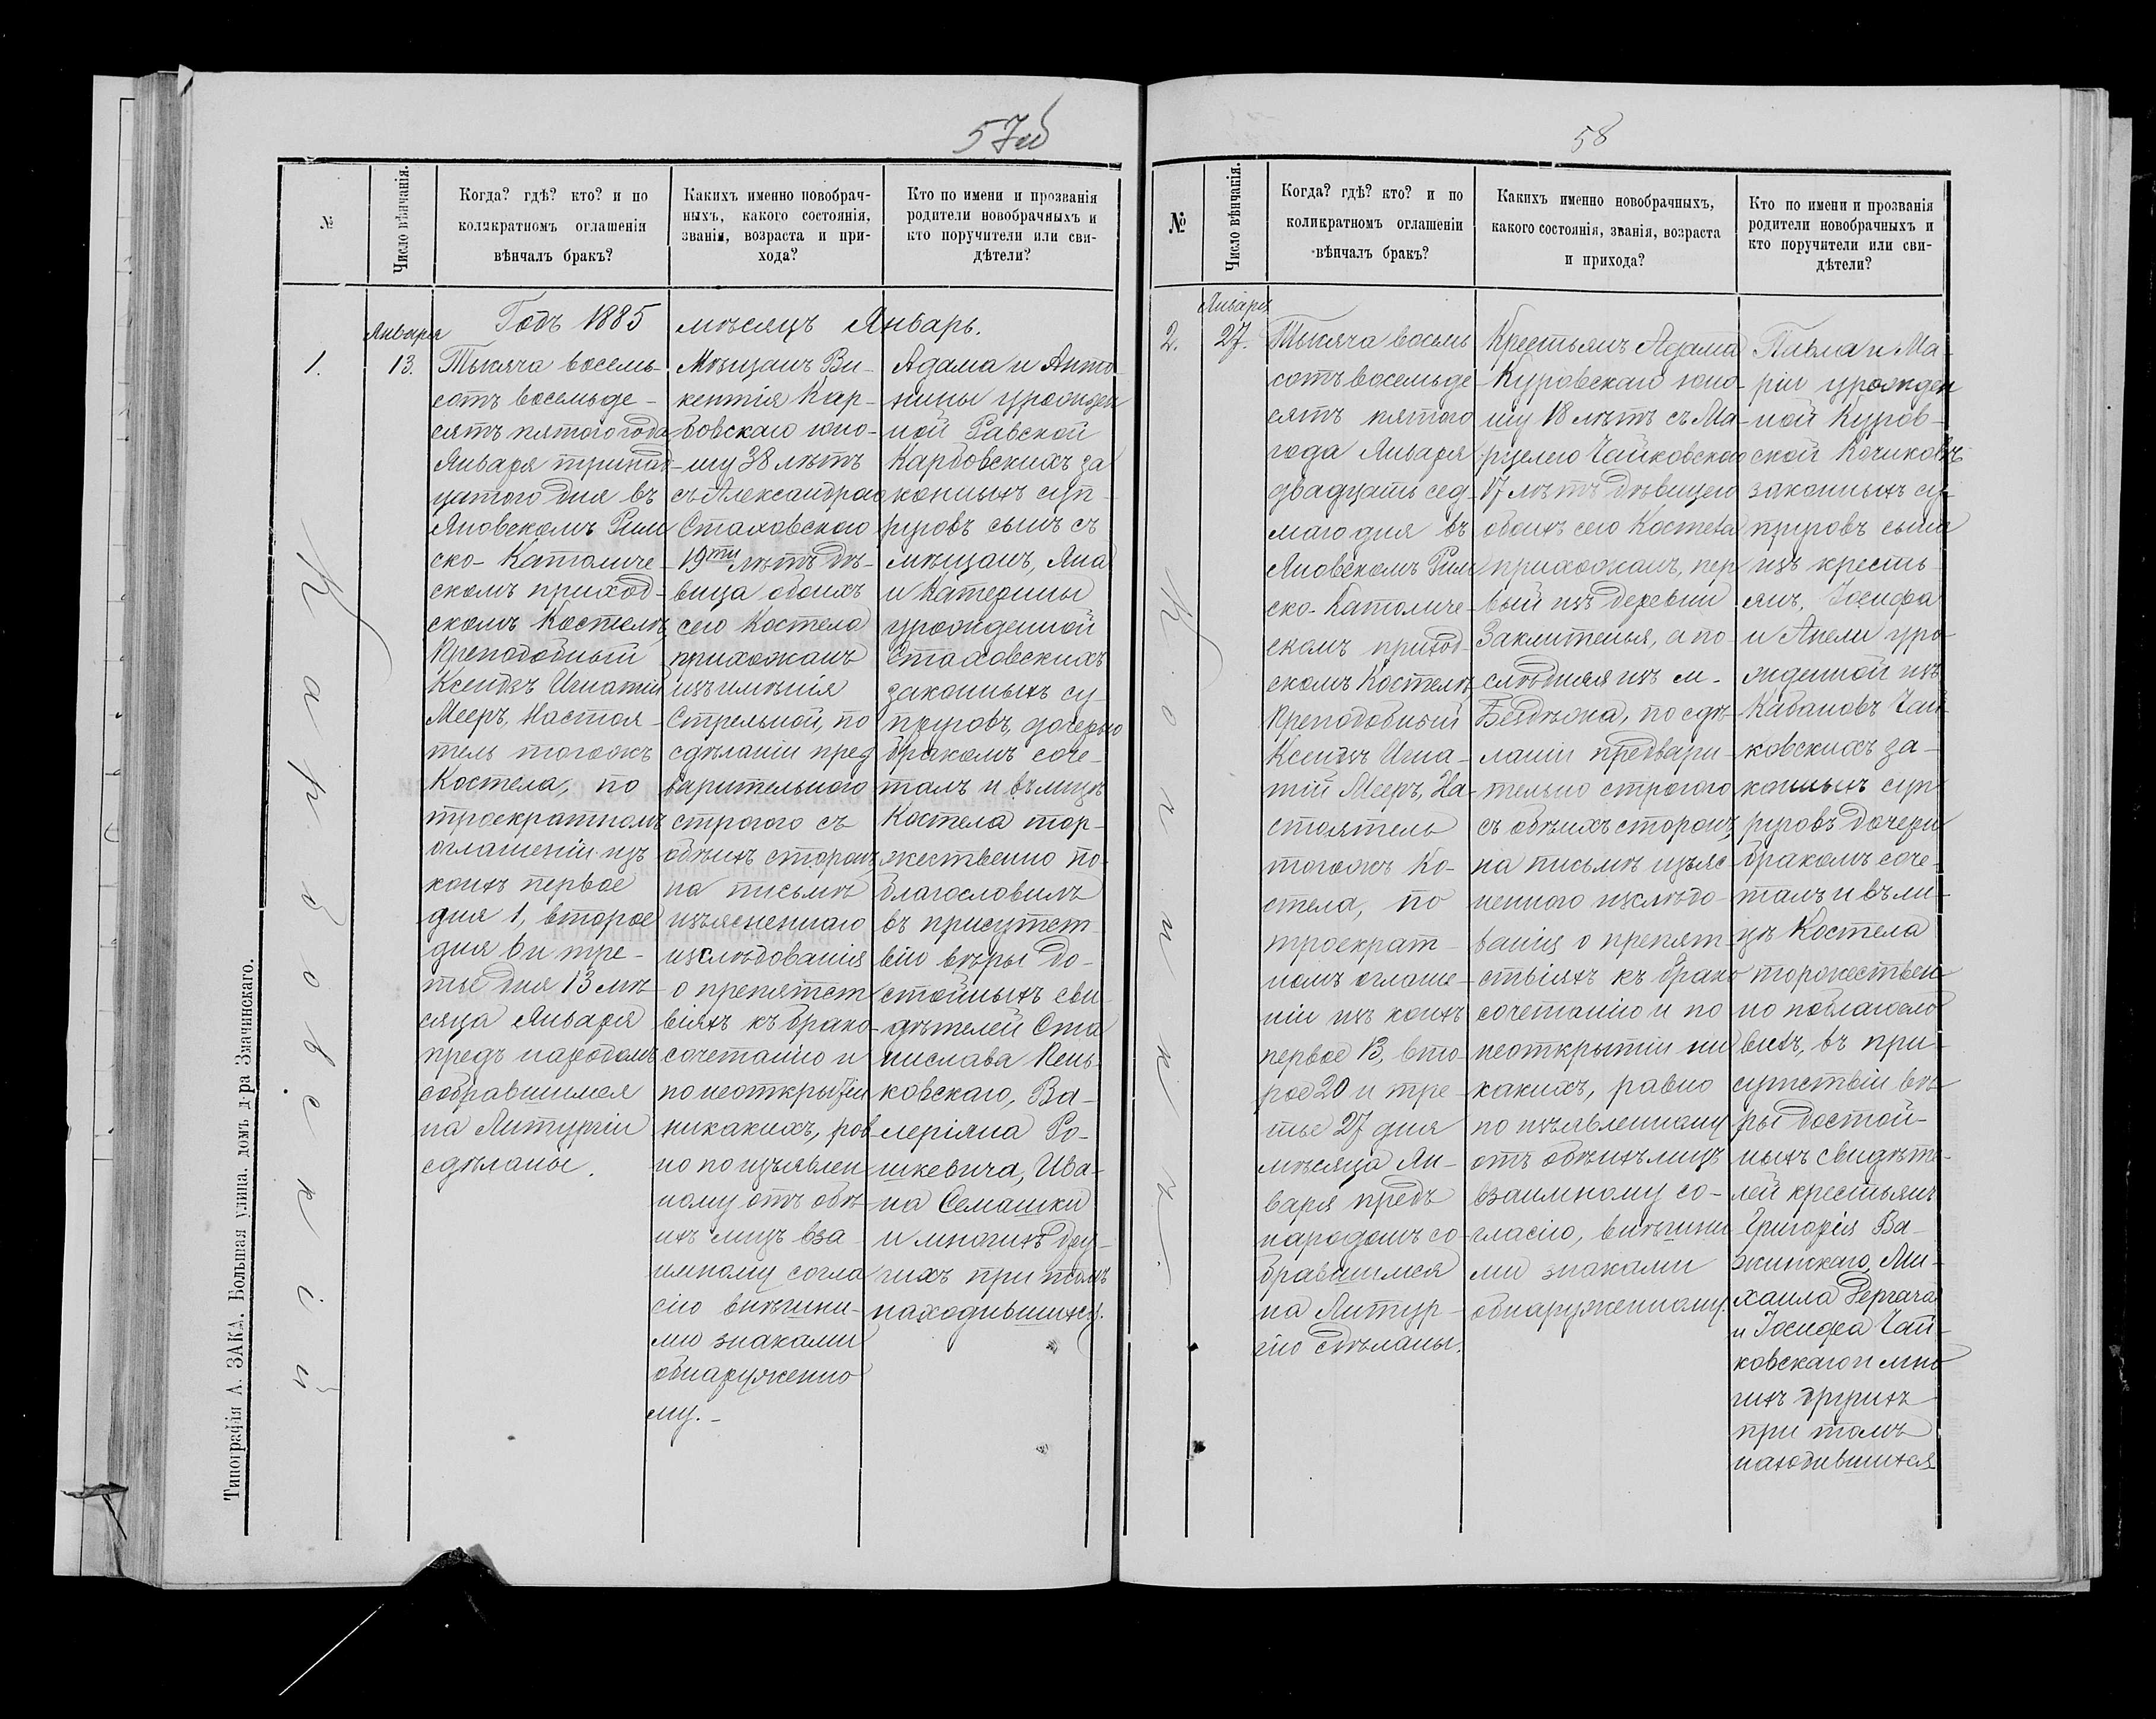 57об
№
Число вѣнчанія.
Когда? гдѣ? кто? и по
коликратномъ оглашеніи
вѣнчалъ бракъ?
Какихъ именно новобрач-
ныхъ, какого состоянія,
званія, возраста и при-
хода?
Кто по имени и прозванія
родители новобрачныхъ и
кто поручители или сви-
дѣтели?
Годъ 1885 мѣсяцъ Январь.
1.
Января
13.
Карбовскій
Тысяча восемь-
сотъ восемьде-
сятъ пятого года
Января тринад-
цатого дня въ
Яновскомъ Рим
ско-Католиче-
скомъ приход-
скомъ Костелѣ
Преподобный
Ксендзъ Игнатій
Мееръ, Настоя-
тель тогожъ
Костела, по
троекратномъ
оглашеніи изъ
коихъ первое
дня 1, второе
дня 6 и тре-
тье дня 13 мѣ-
сяца Января
предъ народомъ
собравшимся
на Литургіи
сдѣланы.
Мѣщанъ Ви-
кентія Кар-
бовскаго юно-
шу 38 лѣтъ
съ Александрою
Стаховскою
19ти лѣтъ дѣ-
вица обоихъ
сего Костела
прихожанъ
изъ имѣнія
Стрельной, по
сдѣланіи пред
варительного
строгого съ
обѣихъ сторонъ
на письмѣ
изъясненнаго
изслѣдованія
о препятст
віяхъ къ брако-
сочетанію и
по неоткрытіи
никакихъ, рав
но по изъявлен
ному отъ обѣ
ихъ лицъ вза
имному согла
сію внѣшни-
ми знаками
обнаруженно
му.-
Адама и Анто-
нины урожден
ной Равской
Карбовскихъ за
конныхъ суп-
руговъ сынъ съ
мѣщанъ, Яна
и Катерины
урожденной
Стаховскихъ
законныхъ су-
пруговъ, дочерью
бракомъ соче-
талъ и въ лицѣ
Костела тор-
жественно по-
благословилъ
въ присутст-
вію вѣры до-
стойныхъ сви-
дѣтелей Ста
нислава Пень-
ковскаго, Ва-
леріяна Ро-
шкевича, Ива-
на Семашки
и многихъ дру-
гихъ при томъ
находившихся.
Типографія А. ЗАКА. Большая улица. домъ д-ра Значинскаго.
58
№
Число вѣнчанія.
Когда? гдѣ? кто? и по
коликратномъ оглашеніи
вѣнчалъ бракъ?
Какихъ именно новобрачныхъ,
какого состоянія, званія, возраста
и прихода?
Кто по имени и прозванія
родители новобрачныхъ и
кто поручители или сви-
дѣтели?
2.
Января
27.
Тысяча восемь
сотъ восемьде
сятъ пятого
года Января
двадцать сед-
маго дня въ
Яновскомъ Рим
ско-Католиче-
скомъ приход-
скомъ Костелѣ
Преподобный
Ксендзъ Игна-
тій Мееръ, На-
стоятель
тогожъ Ко-
стела, по
троекрат-
номъ оглаше-
ніи изъ коихъ
первое 13, вто-
рое 20 и тре-
тье 27 дня
мѣсяца Ян-
варя предъ
народомъ со-
бравшимся
на Литур-
гію сдѣланы.
Крестьянъ Адама
Куровскаго юно-
шу 18 лѣтъ съ Ма-
рцелею Чайковскою
17 лѣтъ дѣвицею
обоихъ сего Костела
прихожанъ, пер
вый изъ деревни
Заклитенья, а по
слѣдняя изъ м.
Бездѣжа, по сдѣ-
ланіи предвари-
тельно строгого
съ обѣихъ сторонъ
на письмѣ изъяс-
неннаго изслѣдо-
ванія о препят-
ствіяхъ къ брако
сочетанію и по
неоткрытіи ни
какихъ, равно
по изъявленному
отъ обѣихъ лицъ
взаимному со-
гласію, внѣшни
ми знаками
обнаруженному.
Павла и Ма-
ріи урожден
ной Куров-
ской
законныхъ су-
пруговъ сына
изъ кресть-
янъ, Іосифа
и Анели уро
жденной изъ
Кабановъ Чай
ковскихъ за-
конныхъ суп
руговъ дочери
бракомъ соче-
талъ и въ ли-
цѣ Костела
торжествен
но поблагосло
вилъ, въ при-
сутствіи вѣ-
ры достой-
ныхъ свидѣте-
лей крестьянъ
Григорія Ва-
жинскаго, Ми-
хаила Дергача
и Іосифа Чай-
ковскаго и мно
гихъ другихъ
при томъ
находившихся